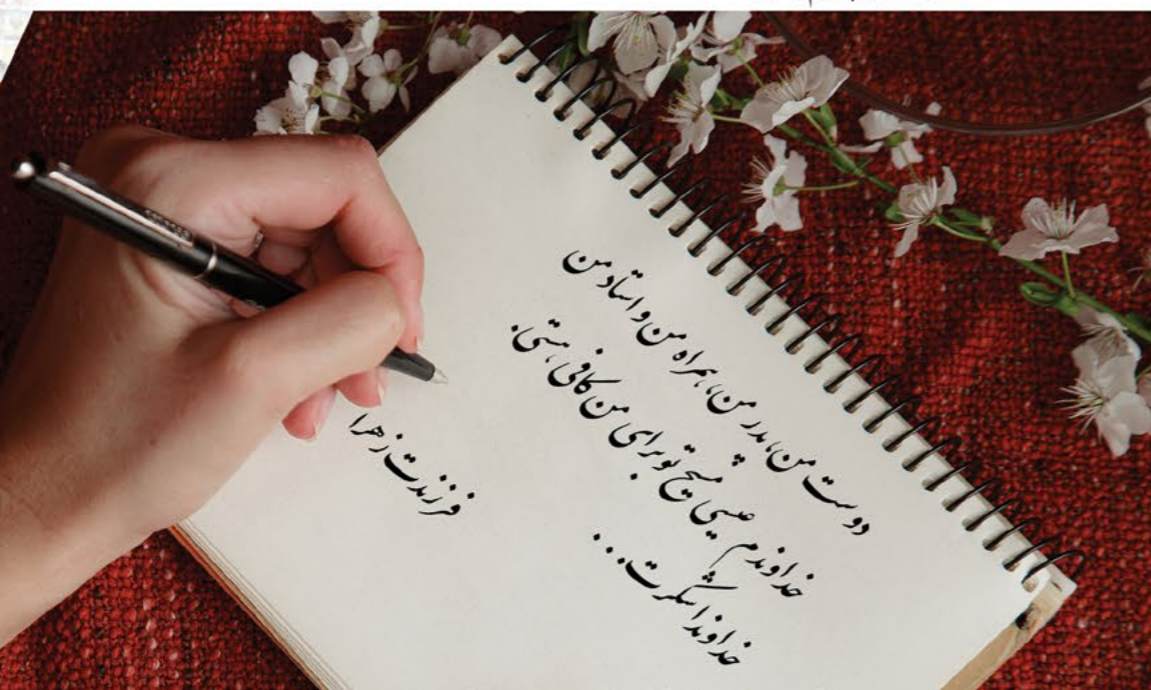 دوست من، پدر من، همراه من و استاد من
خداوندم عیسی مسیح تو برای من کافی هستی.
خداوندا شکرت...
فرزندت زهرا